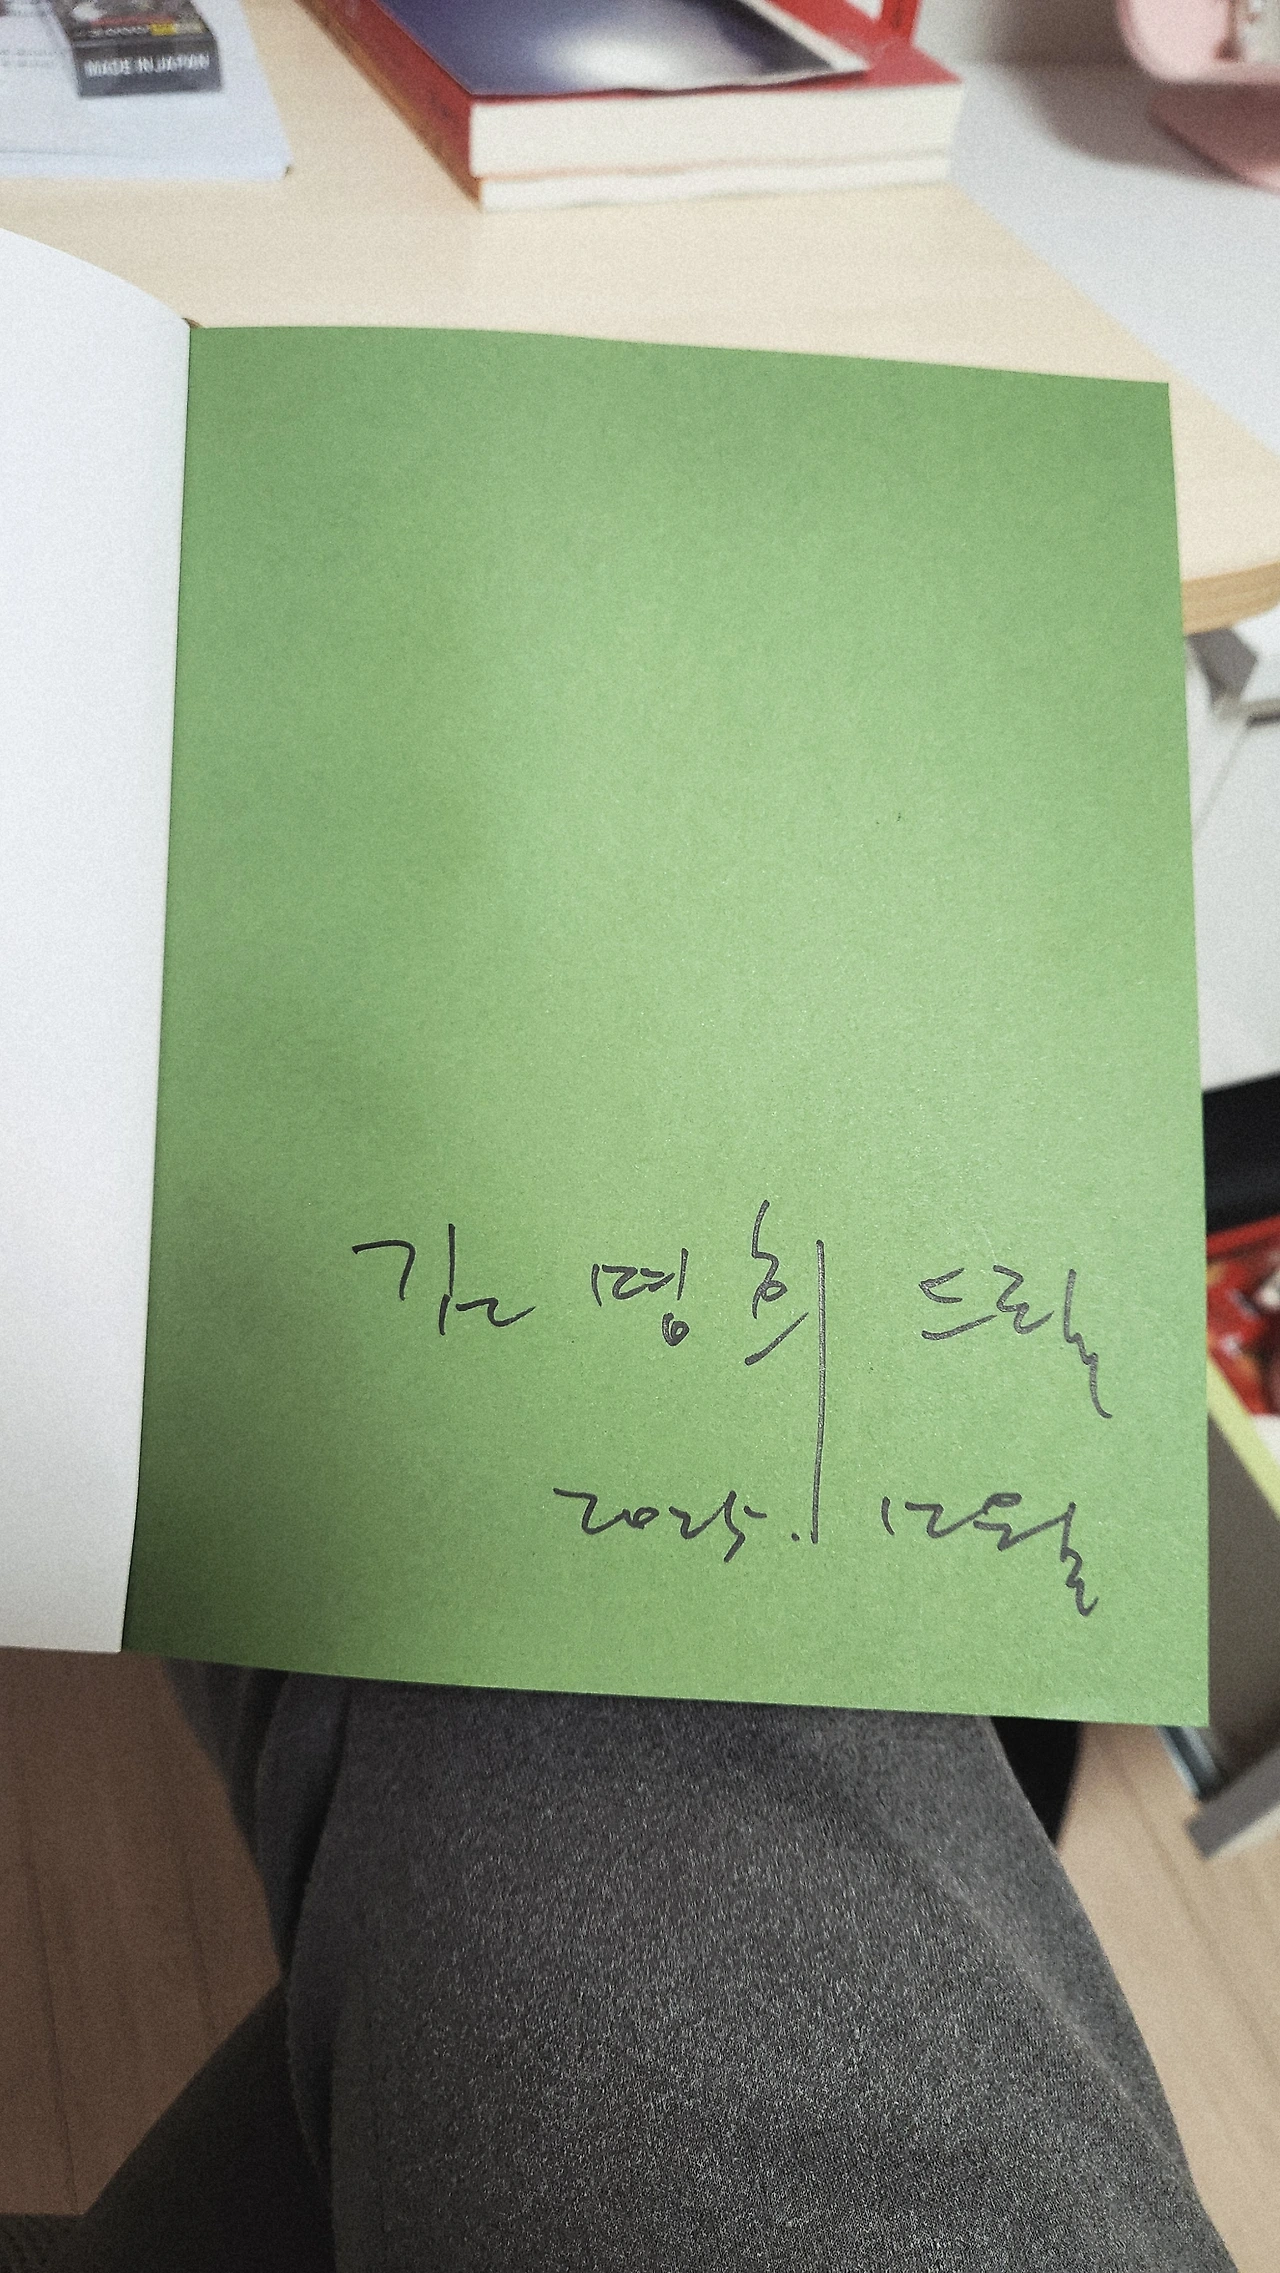 MADE IN JAPAN
김명희 드림
2025. 12월